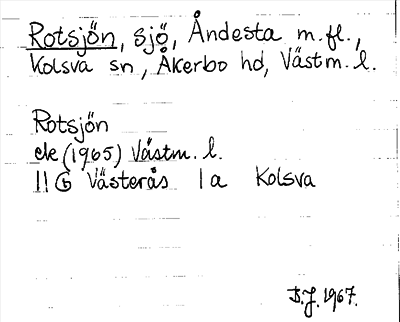 Rotsjön, sjö, Åndesta m.fl.,
Kolsva sn, Åkerbo hd, Västm. l.
Rotsjön
ek (1965) Västm. l.
11 G Västerås 1a Kolsva
B.J. 1967.